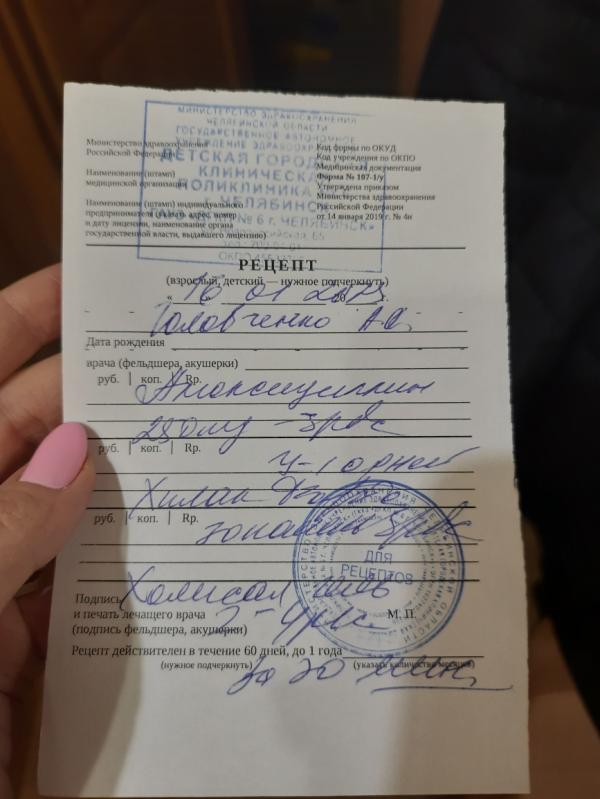 МИНИСТЕРСТВО ЗДРАВООХРАНЕНИЯ
ЧЕЛЯБИНСКОЙ ОБЛАСТИ
ГОСУДАРСТВЕННОЕ АВТОНОМНОЕ
УЧРЕЖДЕНИЕ ЗДРАВООХРАНЕНИЯ
ДЕТСКАЯ ГОРОДСКАЯ
КЛИНИЧЕСКАЯ
ПОЛИКЛИНИКА
ЧЕЛЯБИНСК
№ 6 г. ЧЕЛЯБИНСК»
Министерство здравоохранения
Российской Федерации
Наименование (штамп)
медицинской организации
Наименование (штамп) индивидуального
предпринимателя (указать адрес, номер
и дату лицензии, наименование органа
государственной власти, выдавшего лицензию)
Код формы по ОКУД
Код учреждения по ОКПО
Медицинская документация
Форма № 107-1/у
Утверждена приказом
Министерства здравоохранения
Российской Федерации
от 14 января 2019 г. № 4н
РЕЦЕПТ
(взрослый, детский — нужное подчеркнуть)
« 16 01 20 г.
Головченко А.
Дата рождения
врача (фельдшера, акушерки)
руб. | коп. | Rp. Амоксициллин
250мг - 3рвс
руб. | коп. | Rp.
дней
Хилак
руб. | коп. | Rp.
Холисал гель
ДЛЯ
РЕЦЕПТОВ
Подпись
и печать лечащего врача М. П.
(подпись фельдшера, акушерки)
Рецепт действителен в течение 60 дней, до 1 года
(нужное подчеркнуть) (указать количество месяцев)
За 20 мин